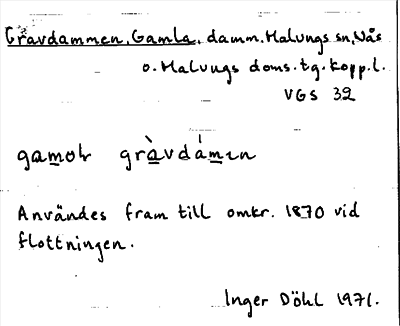 Gravdammen, Gamla, damm. Malungs sn, Nås
o. Malungs doms. tg. kopp. l.
VGS 32
gràvdámın
Användes fram till omkr. 1870 vid
flottningen.
Inger Döhl 1971.